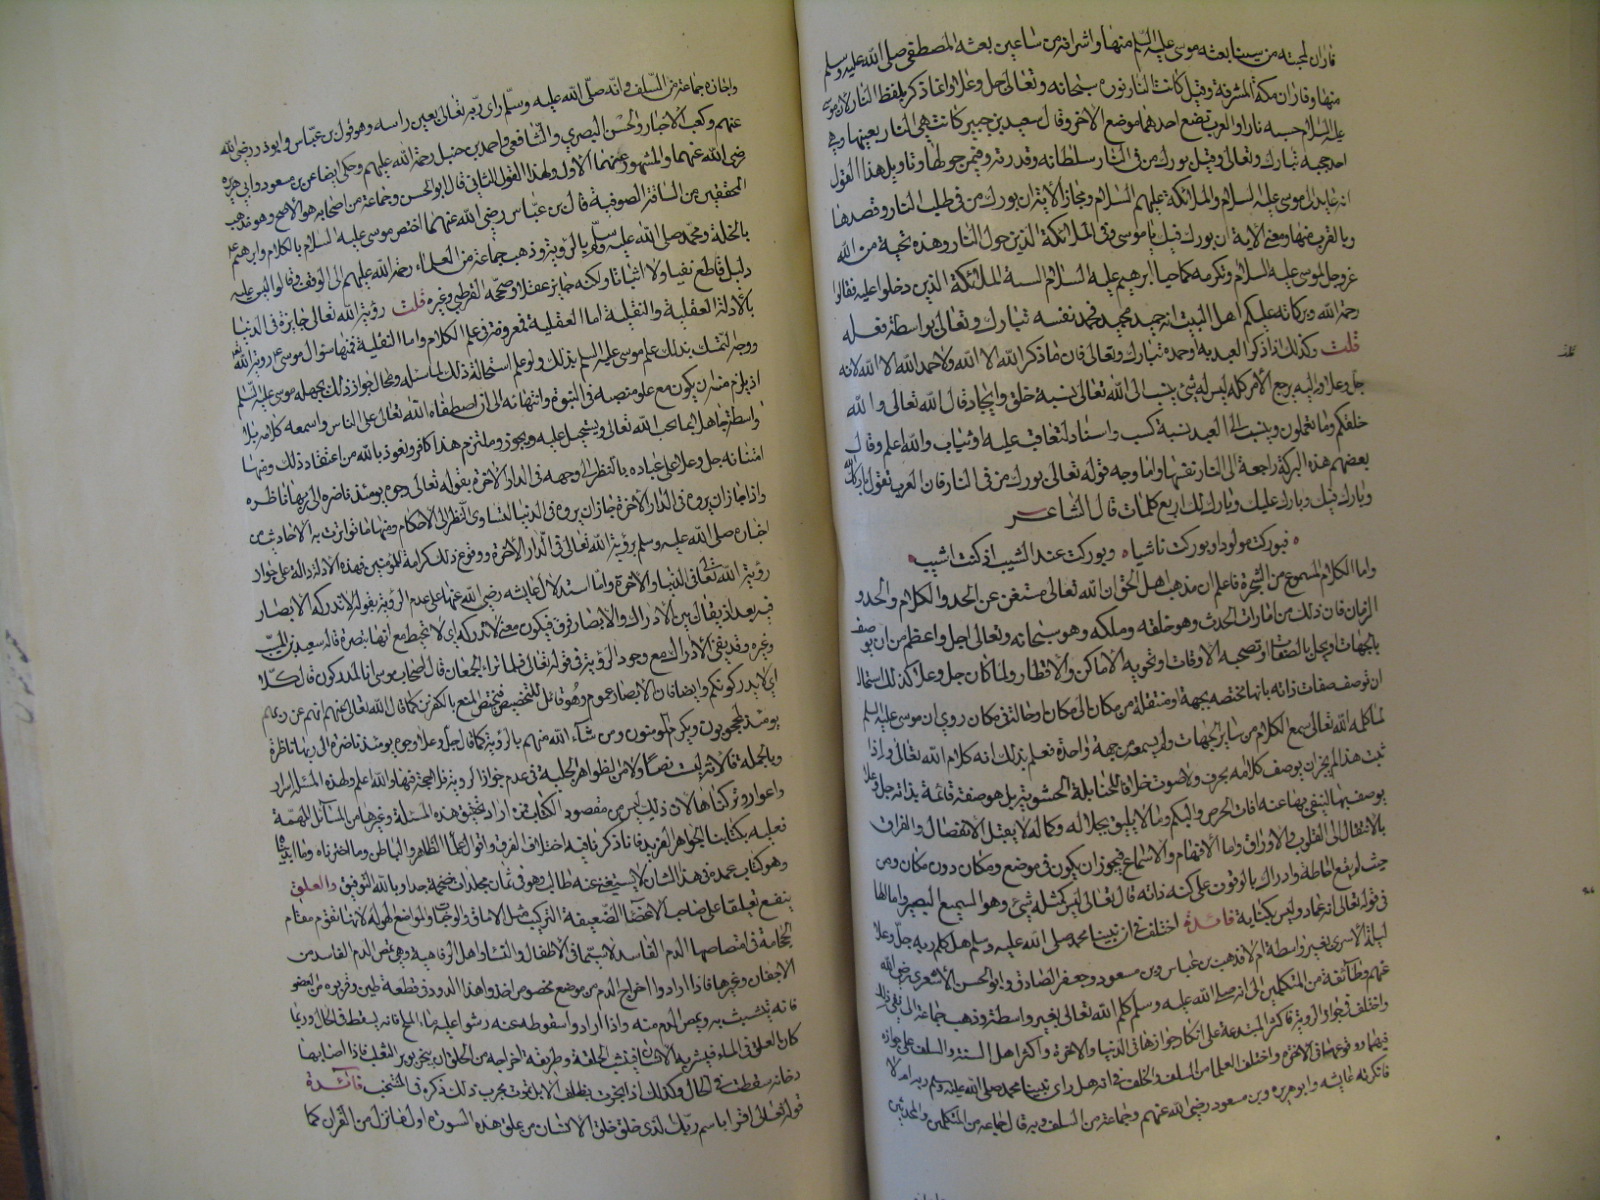 فاران لمجيئه من سينا بعثه موسى عليه السلم منها واشرافه من ساعين بعثه المصطفى صلى الله عليه وسلم
منها وفاران مكة المشرفة وقيل كانت النار نوره سبحانه وتعالى جل وعلا وانما ذكر بلفظ النار لان موسى
عليه السلام حسبه نارا والعرب تضع احدهما موضع الاخر وقال سعيد بن جبير كانت هي النار بعينها وهي
احد حجبه تبارك وتعالى وقيل بورك من في النار سلطانه وقدرته وفيمن حولها وتاويل هذا القول
انه عايد الى موسى عليه السلام والملائكة عليهم السلام ومجاز الاية ان بورك من في طلب النار وقصدها
وبالقرب منها ومعنى الاية ان بورك فيك يا موسى وفي الملائكة الذين حول النار وهذه تحية من الله
عز وجل لموسى عليه السلام وتكرمه كما حيا ابرهيم عليه السلام السنة الملائكة الذين دخلوا عليه فقالوا
رحمة الله وبركاته عليكم اهل البيت انه حميد مجيد فحمد نفسه تبارك وتعالى بواسطة فعله
قلت وكذلك اذا ذكر العبد ربه او حمده تبارك وتعالى فان ما ذكر الله الا الله ولا حمد الله الا الله لانه
جل وعلا واليه يرجع الامر كله ليس له شئ ينسب الى الله تعالى نسبة خلق وايجاد قال الله تعالى والله
خلقكم وما تعملون وينسب الى العبد نسبة كسب واسناد لتعاقب عليه او ثياب والله اعلم وقال
بعضهم هذه البركة راجعة الى النار نفسها واما وجه قوله تعالى بورك من في النار فان العرب تقول باركك الله
وبارك فيك وبارك عليك وبارك لك اربع كلمات قال الشاعر
فبوركت مولودا وبوركت ناشيا وبوركت عند الشيب اذ كنت اشيب
واما الكلام المسموع من الشجرة فاعلم ان مذهب اهل الحق ان الله تعالى مستغن عن الحد والكلام والحدو
الزمان فان ذلك من امارات الحدث وهو خلقه وملكه وهو سبحانه وتعالى اجل واعظم من ان يوصف
بالجهات ويحل بالصفات او تصحبه الاوقات او تحويه الاماكن والاقطار ولما كان جل وعلا كذلك استحال
ان توصف صفات ذاته بانها مختصة بجهة او منتقلة من مكان الى مكان او حالة في مكان روي ان موسى عليه السلم
لما كلمه الله تعالى سمع الكلام من ساير الجهات ولم يسمع من جهة واحدة فعلم بذلك انه كلام الله تعالى واذا
ثبت هذا لم يجز ان يوصف كلامه بحرف ولا صوت خلافا للحنابلة الحشوية بل هو صفة قائمة بذاته جل وعلا
يوصف بها ينتفي بها عنه افات الخرس والبكم وما لا يليق بجلاله وكماله لا يقبل الانفصال والفراق
بالانتقال الى القلوب والاوراق واما الافهام والاسماع فيجوز ان يكون في موضع ومكان دون مكان ومن
حيث لم يقع احاطة وادراك بالوقوف على كنه ذاته قال تعالى ليس كمثله شئ وهو السميع البصير واما الها
في قوله تعالى انه عماد وليس بكناية فائدة اختلف في ان نبينا محمد صلى الله عليه وسلم هل كلم ربه جل وعلا
ليلة الاسرى بغير واسطة ام لا فذهب بن عباس وبن مسعود وجعفر الصادق وابو الحسن الاشعري رضي الله
عنهم وطائفة من المتكلمين الى انه صلى الله عليه وسلم كلم الله تعالى بغير واسطة وذهب جماعة الى نفي ذلك
واختلف في جواز الروية فاكثر المبتدعة على انكار جوازها في الدنيا والاخرة واكثر اهل السنة والسلف على جوازه
فيهما ووقوعها في الاخرة واختلف العلما من السلف والخلف في انه هل راى نبينا محمد صلى الله عليه وسلم ربه ام لا
فانكرته عايشة وابو هريرة وبن مسعود رضي الله عنهم وجماعة من السلف وبه قال جماعة من المتكلمين والمحدثين
واجازه جماعة من السلف وانه صلى الله عليه وسلم راى ربه تعالى بعين راسه وهو قول بن عباس وابو ذر رضي الله
عنهم وكعب الاحبار والحسن البصري والشافعي واحمد بن حنبل رحمة الله عليهم وحكي ايضا عن بن مسعود وابي هريرة
رضي الله عنهما والمشهور عنهما الاول ولهذا القول الثاني قال ابو الحسن وجماعة من اصحابه هو الاصح وهو مذهب
المحققين من السادة الصوفية قال بن عباس رضي الله عنهما اختص موسى عليه السلام بالكلام وابرهيم
بالخلة ومحمد صلى الله عليه وسلم بالروية وذهب جماعة من العلماء رحمة الله عليهم الى الوقف وقالوا ليس عليه
دليل قاطع نفيا ولا اثباتا ولكنه جايز عقلا وصححه القرطبي وغيره قلت رؤية الله تعالى جايزة في الدنيا
بالادلة العقلية والنقلية اما العقلية فمعروفة في علم الكلام واما النقلية فمنها سوال موسى روية الله
ووجه التمسك بذلك علم موسى عليه السلم بذلك ولو علم استحالة ذلك لما ساله ومحال جواز ذلك يجهله موسى عليه السلم
اذ يلزم منه ان يكون مع علو منصبه في النبوة وانتهائه الى ان اصطفاه الله تعالى على الناس واسمعه كلامه بلا
واسطة جاهلا بما يجب لله تعالى ويستحيل عليه ويجوز وملتزم هذا كافر ونعوذ بالله من اعتقاد ذلك ومنها
امتنانه جل وعلا على عباده بالنظر الى وجهه في الدار الاخرة بقوله تعالى وجوه يومئذ ناضرة الى ربها ناظره
واذا جاز ان يروه في الدار الاخرة جاز ان يروه في الدنيا لتساوي النظر الى الاحكام ومنها ما تواترت به الاحاديث من
اخباره صلى الله عليه وسلم برؤية الله تعالى في الدار الاخرة ووقوع ذلك كرامة للمؤمنين فهذه الادلة دالة على جواز
رؤية الله تعالى في الدنيا والاخرة واما استدلال عايشه رضي الله عنها على عدم الروية بقوله لا تدركه الابصار
فيه بعد اذ يقال بين الادراك والابصار فرق فيكون معنى لا تدركه اي لا تحيط به مع انها تبصره قاله سعيد بن المسيب
وغيره وقد ينفى الادراك مع وجود الروية في قوله تعالى فلما تراءا الجمعان قال اصحاب موسى انا لمدركون قال كلا
اي لا يدركونكم وايضا فان الابصار عموم وهو قابل للتخصيص فيختص المنع بالكفرين كما قال الله تعالى عنهم انهم عن ربهم
يومئذ لمحجوبون ويكرم المومنون ومن شاء الله منهم بالروية كما قال جل وعلا وجوه يومئذ ناضرة الى ربها ناظرة
وبالجملة فالاية ليست نصا ولا من الظواهر الجلية في عدم جواز الروية فلا حجة فيها والله اعلم ولهذه المسئلة اسرار
واغوار وتركناها لان ذلك ليس من مقصود الكتاب فمن اراد تحقيق هذه المسئلة وغيرها من المسائل المهمة
فعليه بكتابنا الجواهر الفريد فانا ذكرنا فيه اختلاف الفرق واقوال علما الظاهر والباطن وما اخترناه وما ايدناه
وهو كتاب عمدة في هذا الشان لا يستغني عنه طالب وهو في ثمان مجلدات ضخمة جدا وبالله التوفيق والعلق
ينفع تعليقا على صاحب الاعضا الضعيفة التركيب مثل الاماق والوجنات والمواضع لهولة لانها تقوم مقام
الحجامة في امتصاصها الدم الفاسد لا سيما في الاطفال والنسا واهل الرفاهية وهي تمص الدم الفاسد من
الاجفان وغيرها فاذا ارادوا اخراج الدم من موضع مخصوص اخذوا هذا الدود في قطعة طين وقربوه من العضو
فانه يتشبث به ويمص الدم منه واذا ارادوا سقوطه عنه رشوا عليه ما الملح فانه يسقط في الحال وربما
كان العلق في الماء فيشربه الانسان فينشب بالحلقة وطريقة اخراجه من الحلق ان يبخر بوبر الثعلب فاذا اصابها
دخانه سقطت في الحال وكذلك اذا بخر بظلف الابل تموت مجرب ذلك ذكره في المنتخب فائدة
قوله تعالى اقرا باسم ربك الذي خلق خلق الانسان من علق هذه السورة اول ما نزل من القران كما